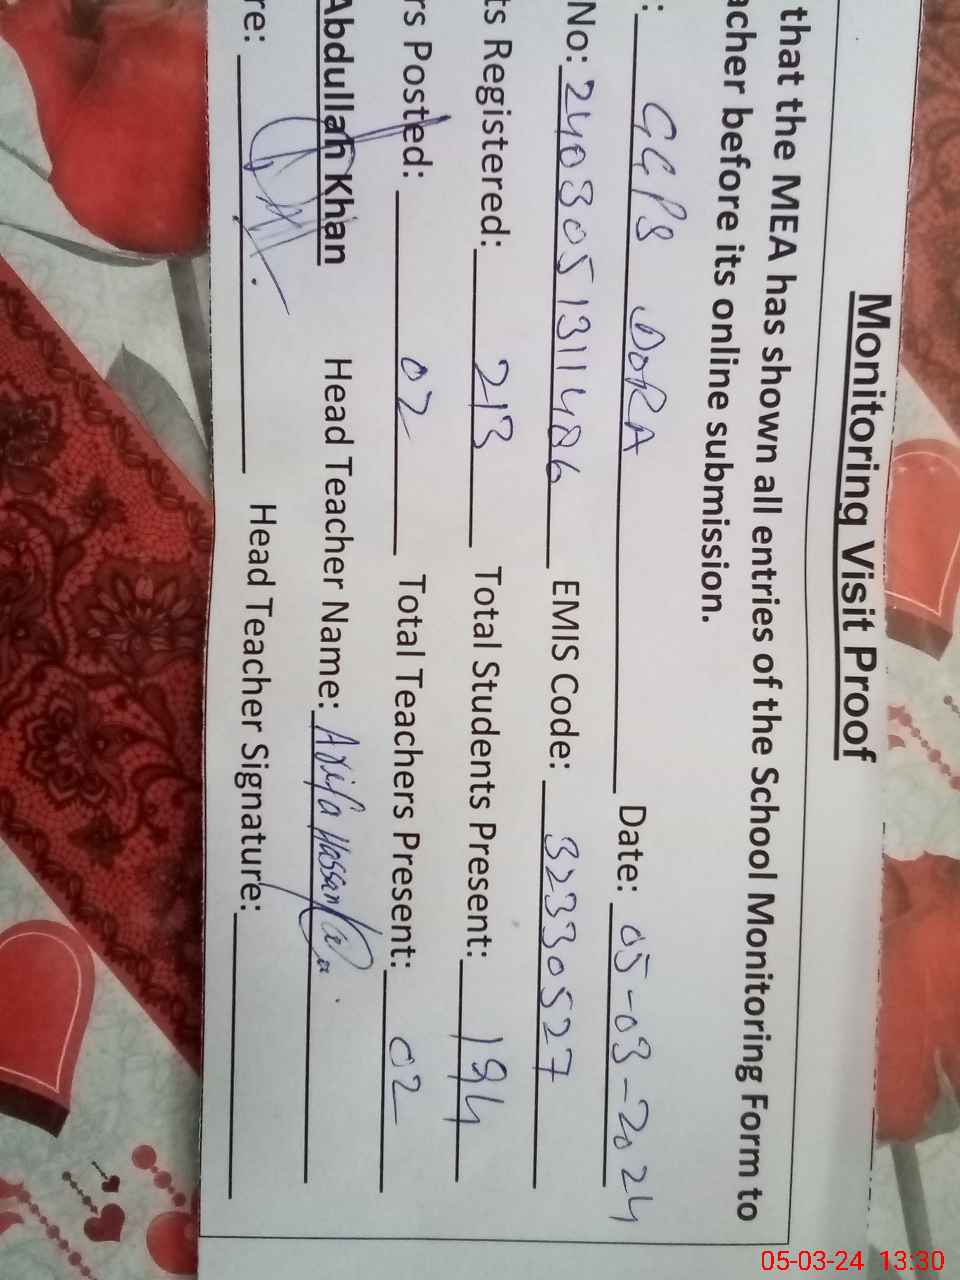 Monitoring Visit Proof
that the MEA has shown all entries of the School Monitoring Form to
acher before its online submission.
: GGPS DORA Date: 05-03-2024
No: 2403051311486 EMIS Code: 32330527
ts Registered: 213 Total Students Present: 194
rs Posted: 02 Total Teachers Present: 02
Abdullah Khan Head Teacher Name: Arifa Hassan
re: Head Teacher Signature:
05-03-24 13:30